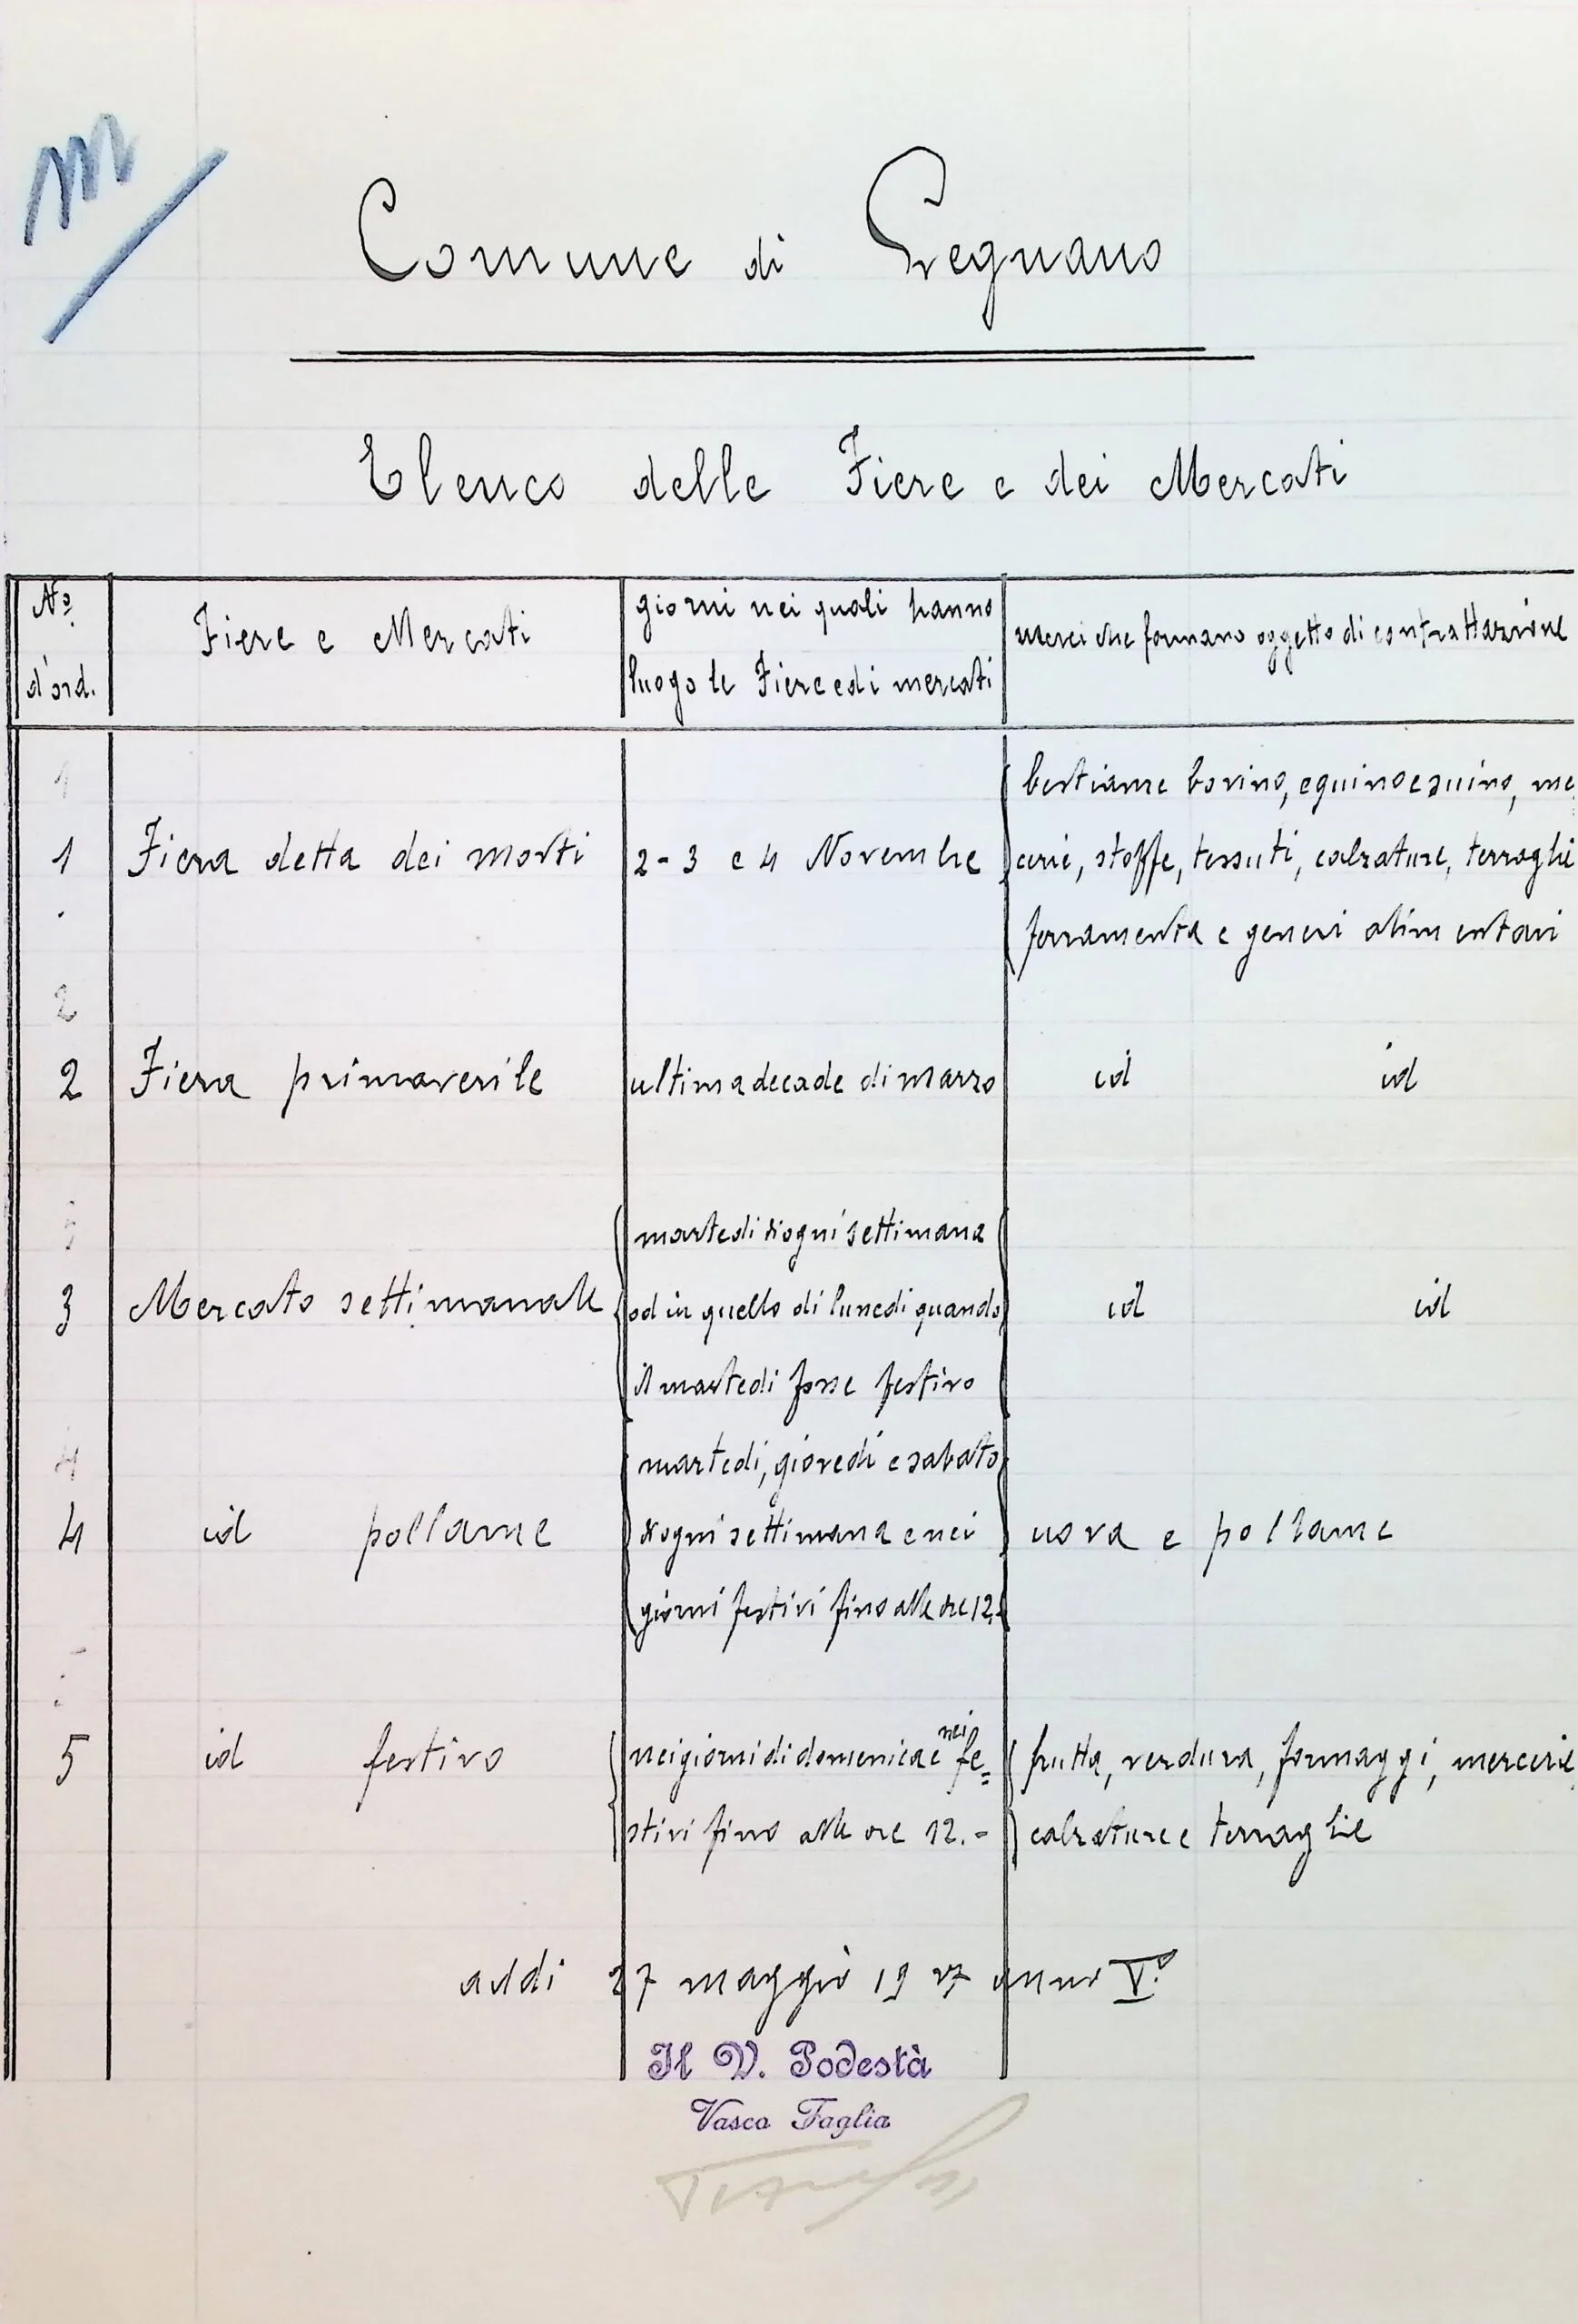 m
Comune di Legnano
Elenco delle Fiere e dei Mercati
Nº d'ord.
Fiere e Mercati
giorni nei quali hanno
luogo le Fiere ed i mercati
merci che formano oggetto di contrattazione
1
1
Fiera detta dei morti
2 - 3 e 4 Novembre
bestiame bovino, equino e suino, me
cerie, stoffe, tessuti, calzature, terraglie
ferramenta e generi alimentari
2
2
Fiera primaverile
ultima decade di marzo
id id
3
Mercato settimanale
martedi d'ogni settimana
od in quello di lunedi quando
il martedi fosse festivo
id id
4
4
id pollame
martedi, giovedi e sabato
d'ogni settimana e nei
giorni festivi fino alle ore 12.-
uova e pollame
5
id festivo
nei giorni di domenica e nei fe=
stivi fino alle ore 12.-
frutta, verdura, formaggi, mercerie
calzature e terraglie
addi 27 maggio 1927 anno Vº
Il V. Podestà
Vasco Taglia